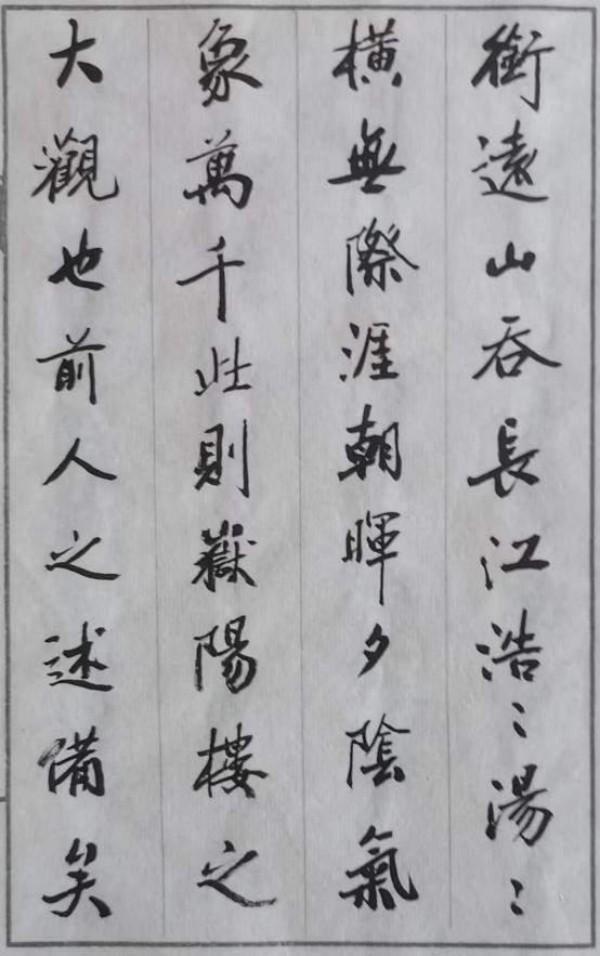 銜遠山吞長江浩〻湯〻
橫無際涯朝暉夕陰氣
象萬千此則嶽陽樓之
大觀也前人之述備矣